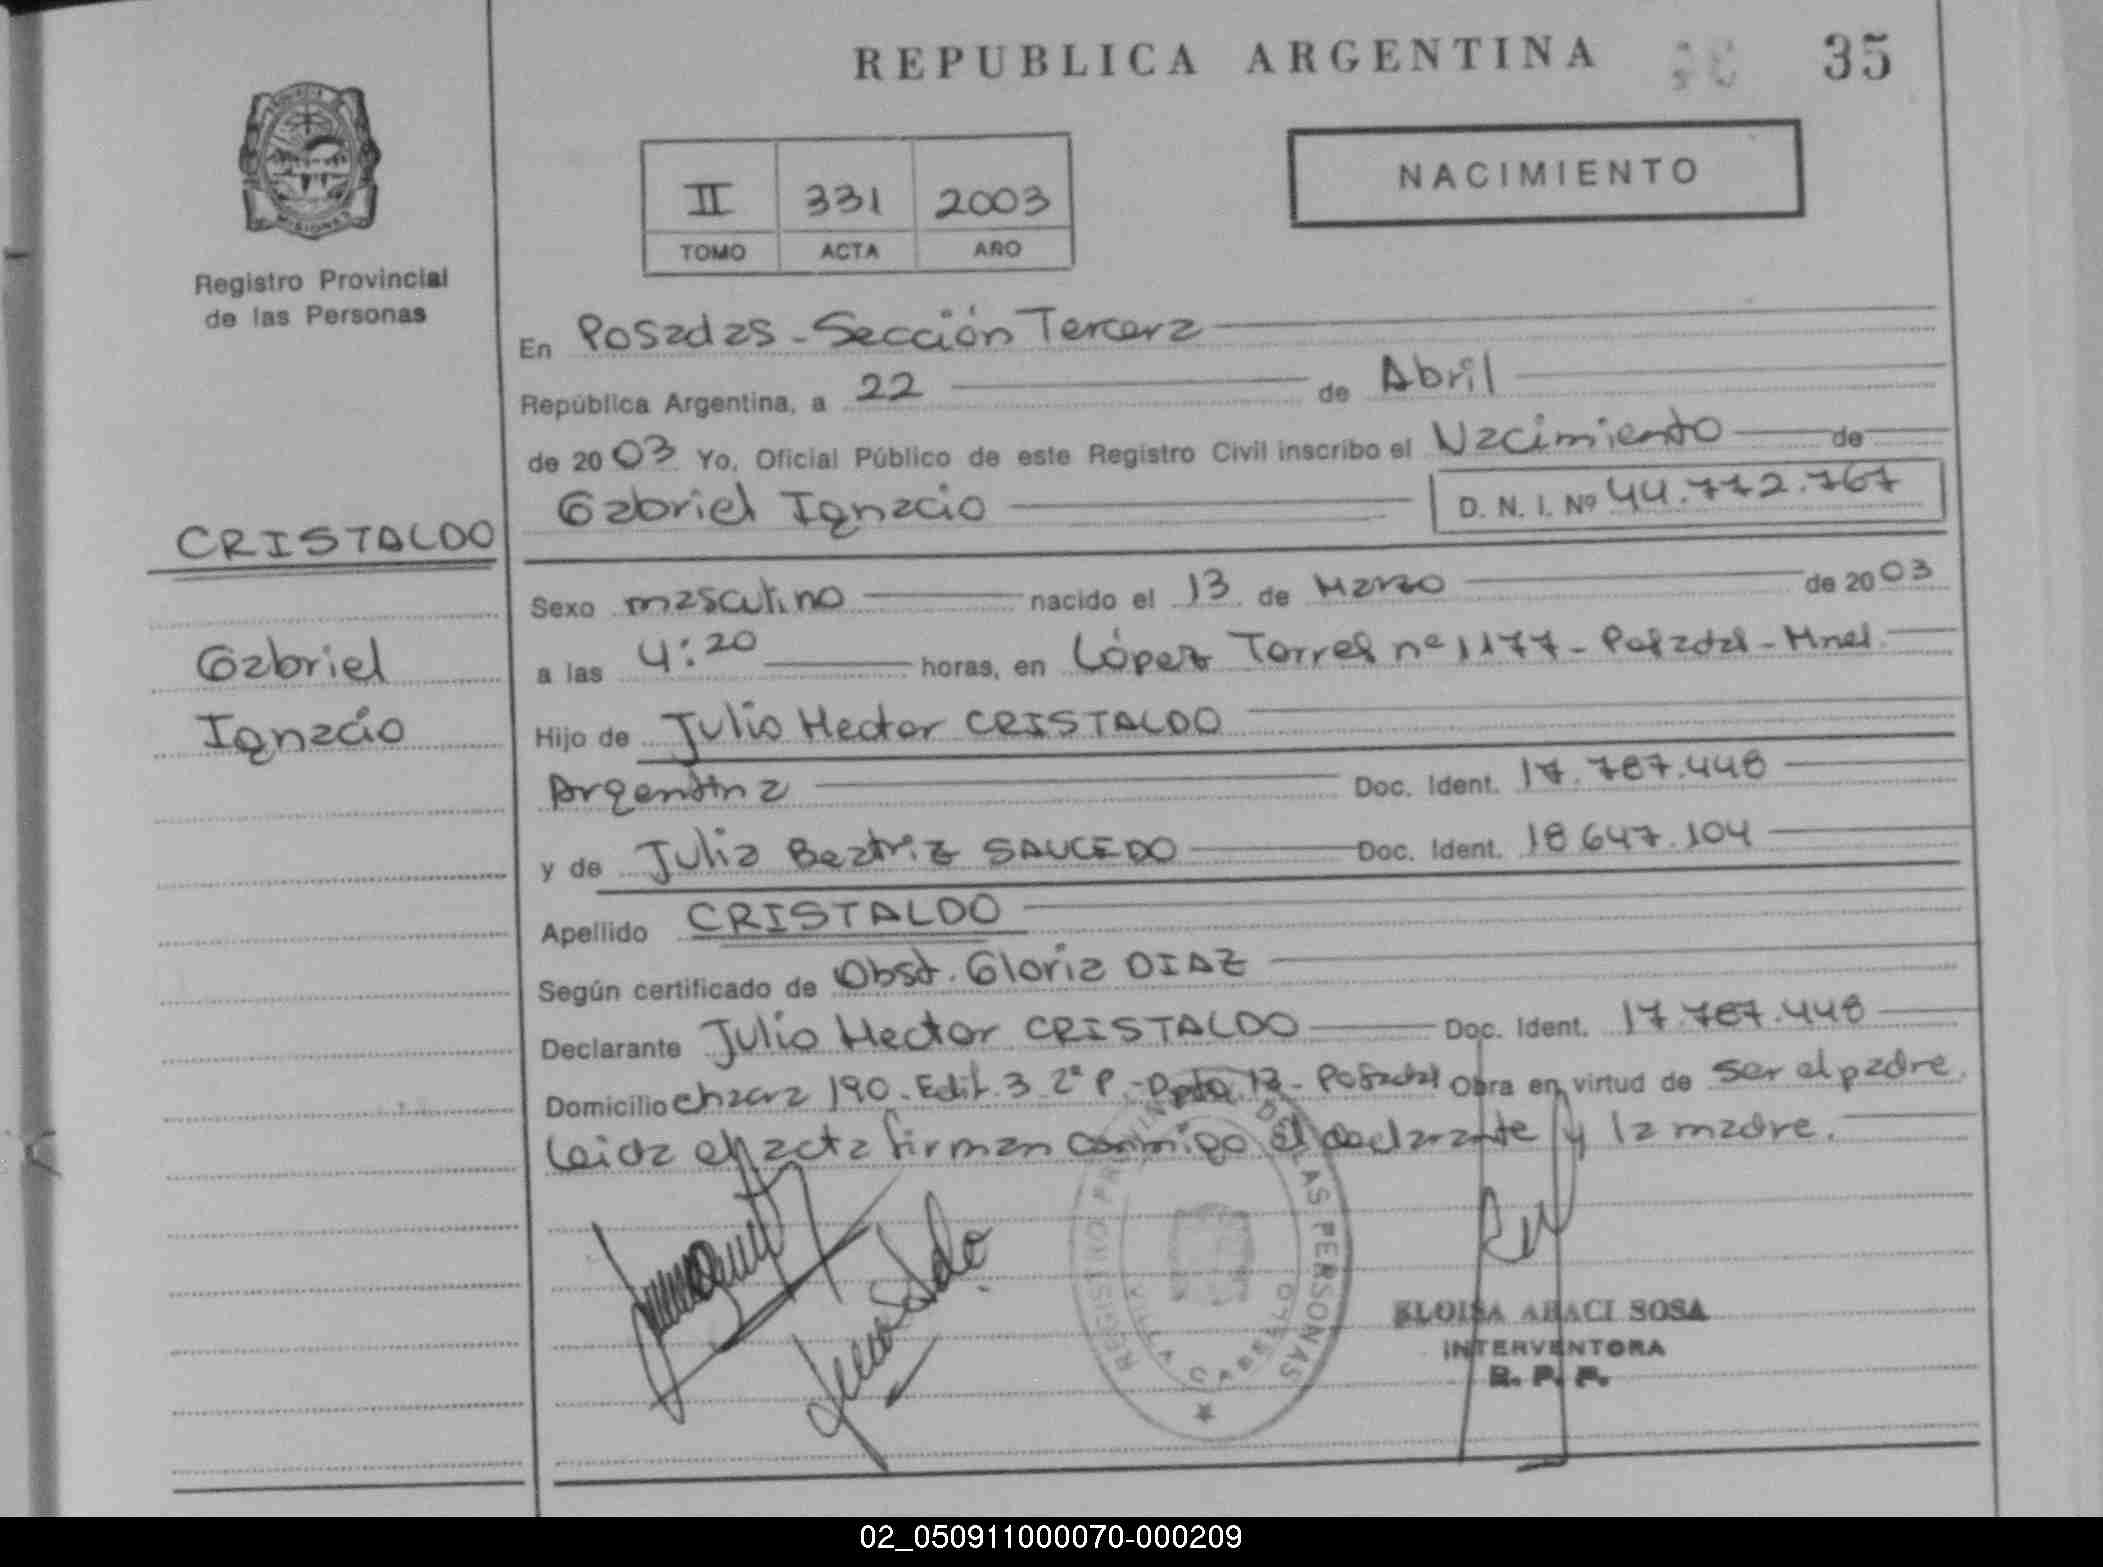 REPUBLICA ARGENTINA 35
NACIMIENTO
II 331 2003
TOMO ACTA AÑO
Registro Provincial
de las Personas
En Posadas - Sección Tercera
República Argentina, a 22 de Abril
de 2003 Yo, Oficial Público de este Registro Civil inscribo el Nacimiento de
Gabriel Ignacio D. N. I. Nº 44.772.767
CRISTALDO
Gabriel
Ignacio
Sexo masculino nacido el 13 de Marzo de 2003
a las 4:20 horas, en López Torres nº 1177 - Posadas - Mnes.
Hijo de Julio Hector CRISTALDO
Argentina Doc. Ident. 17.787.448
y de Julia Beatriz SAUCEDO Doc. Ident. 18.647.104
Apellido CRISTALDO
Según certificado de Obst. Gloria DIAZ
Declarante Julio Hector CRISTALDO Doc. Ident. 17.787.448
Domicilio chacra 190. Edif. 3 2º P. - Dpto. 12 - Posadas Obra en virtud de ser el padre.
Leida el acta firman conmigo el declarante y la madre.
REGISTRO PROVINCIAL DE LAS PERSONAS
VILLA CABELLO
ELOISA ABACI SOSA
INTERVENTORA
R. P. P.
02_050911000070-000209